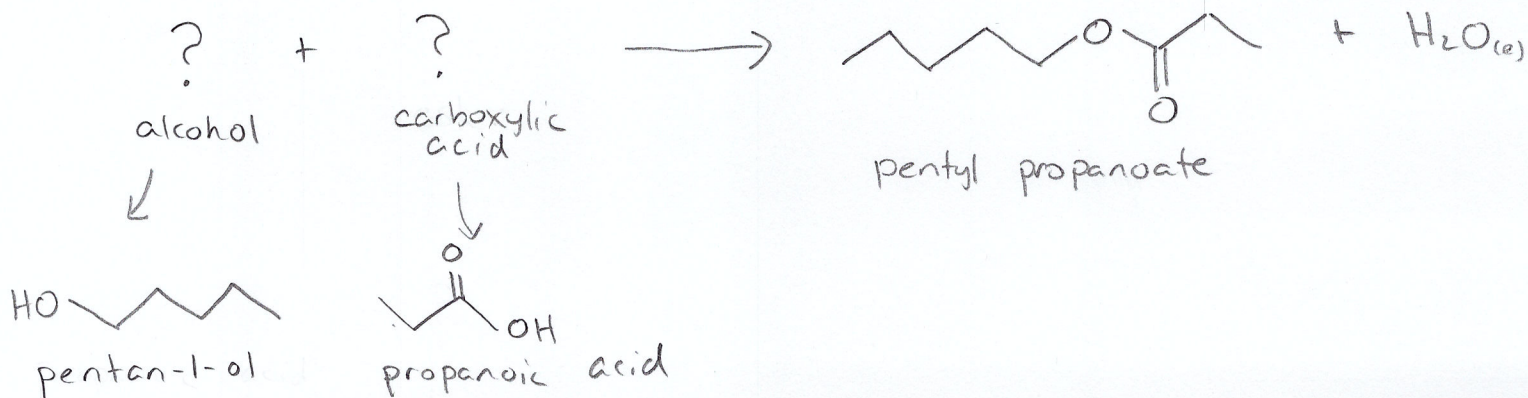 ? + ? → O + H₂O(l)
O
alcohol carboxylic acid
pentyl propanoate
O
HO OH
pentan-1-ol propanoic acid